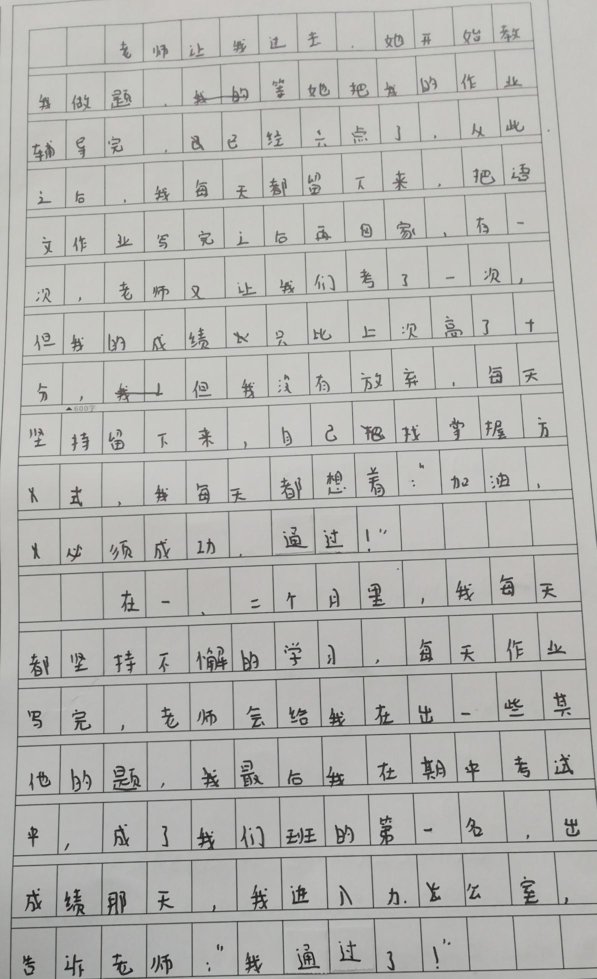 老师让我过去，她开始教
我做题，我的等她把我的作业
辅导完，已经六点了，从此
之后，我每天都留下来，把语
文作业写完之后再回家，有一
次，老师又让我们考了一次，
但我的成绩只比上次高了十
分，我但我没有放弃，每天
▲600字
坚持留下来，自己把找掌握方
式，我每天都想着：“加油，
必须成功，通过！”
在一、二个月里，我每天
都坚持不懈的学习，每天作业
写完，老师会给我在出一些其
他的题，我最后我在期中考试
中，成了我们班的第一名，出
成绩那天，我进入办公室，
告诉老师：“我通过了！”